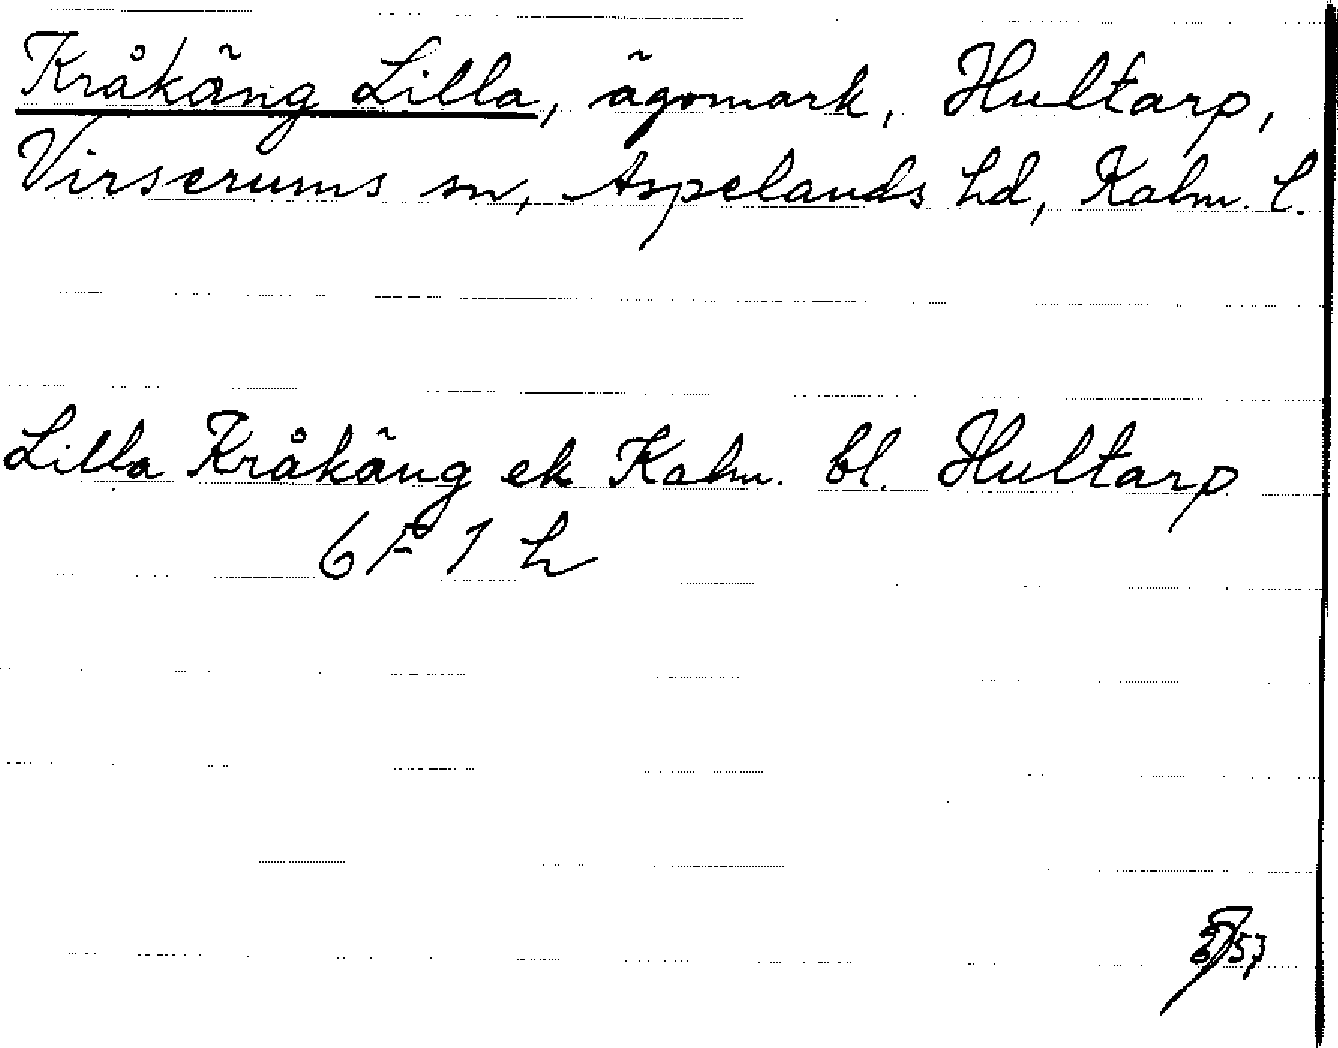 Kråkäng Lilla, ägomark, Hultarp,
Virserums sn, Aspelands hd, Kalm. l.
Lilla Kråkäng ek Kalm. bl. Hultarp
6 F 1 h
57